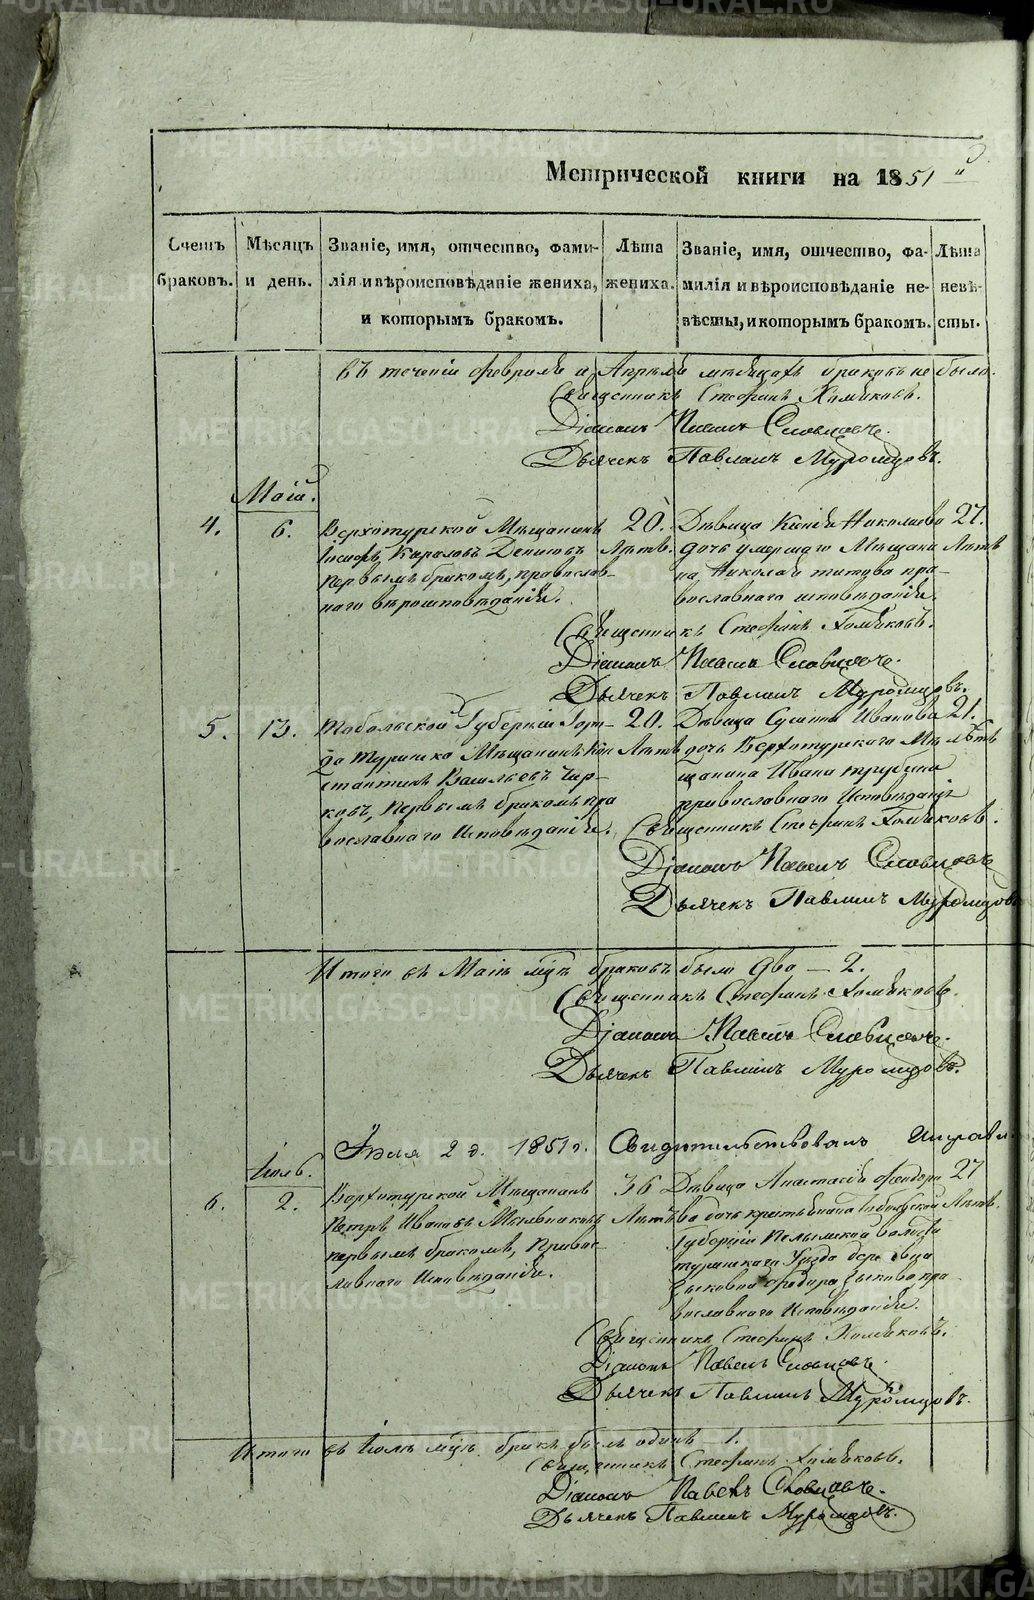 METRIKI.GASO-URAL.RU
Метрической книги на 1851
Счетъ браковъ.
Мѣсяцъ и день.
Званіе, имя, отчество, фами-
лія и вѣроисповѣданіе жениха,
и которымъ бракомъ.
Лѣта
жениха.
Званіе, имя, отчество, фа-
милія и вѣроисповѣданіе не-
вѣсты, и которымъ бракомъ.
Лѣта
невѣ-
сты.
въ теченіи февраля и Апрѣля мѣсяцахъ браковъ не было.
Священникъ Стефанъ Хомяковъ.
Діаконъ Павелъ Словцовъ.
Дьячекъ Павлинъ Муромцовъ.
Маій.
4.
6.
Верхотурской Мѣщанинъ
Іосифъ Карповъ
первымъ бракомъ, православ-
наго вѣроисповѣданія.
20.
Лѣтъ.
Дѣвица Николаева
дочь умершаго Мѣщани
на Николая Титова пра-
вославнаго исповѣданія.
27.
Лѣтъ
Священникъ Стефанъ Хомяковъ.
Діаконъ Павелъ Словцовъ.
Дьячекъ Павлинъ Муромцовъ.
5.
13.
Тобольской Губерніи Горо-
да Туринска Мѣщанинъ Кон
стантинъ Васильевъ Чир-
ковъ, первымъ бракомъ пра
вославнаго Исповѣданія.
20.
Лѣтъ
Дѣвица Иванова
дочь Верхотурскаго Мѣ
щанина Ивана
православнаго Исповѣданія
21.
Лѣтъ
Священникъ Стефанъ Хомяковъ.
Діаконъ Павелъ Словцовъ
Дьячекъ Павлинъ Муромцовъ
Итого въ Маіѣ мцѣ браковъ было два — 2.
Священникъ Стефанъ Хомяковъ.
Діаконъ Павелъ Словцовъ.
Дьячекъ Павлинъ Муромцовъ.
Іюля 2 д. 1851 г. Свидѣтельствовалъ
Іюль.
6.
2.
Верхотурской Мѣщанинъ
Петръ Ивановъ Мыльниковъ
первымъ бракомъ, Право-
славнаго Исповѣданія.
36
Лѣтъ
Дѣвица Анастасія Федоро
ва дочь крестьянина Тобольской
Губерніи Пелымской волости
Туринскаго Уѣзда
Зыкова Федора Зыкова пра
вославнаго Исповѣданія.
27
Лѣтъ.
Священникъ Стефанъ Хомяковъ.
Діаконъ Павелъ Словцовъ.
Дьячекъ Павлинъ Муромцовъ.
Итого въ Іюлѣ мцѣ бракъ былъ одинъ 1.
Священникъ Стефанъ Хомяковъ.
Діаконъ Павелъ Словцовъ.
Дьячекъ Павлинъ Муромцовъ.